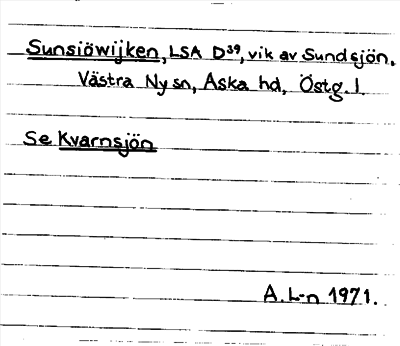 Sunsiöwijken, LSA D³⁹, vik av Sundsjön.
Västra Ny sn, Aska hd, Östg. l.
Se Kvarnsjön
A. L-n 1971.